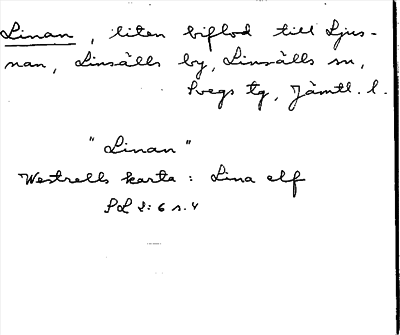 Linan, liten biflod till Ljus-
nan, Linsälls by, Linsälls sn,
Svegs tg, Jämtl. l.
"Linan"
Westrells karta: Lina elf
SL 2:6 s. 4